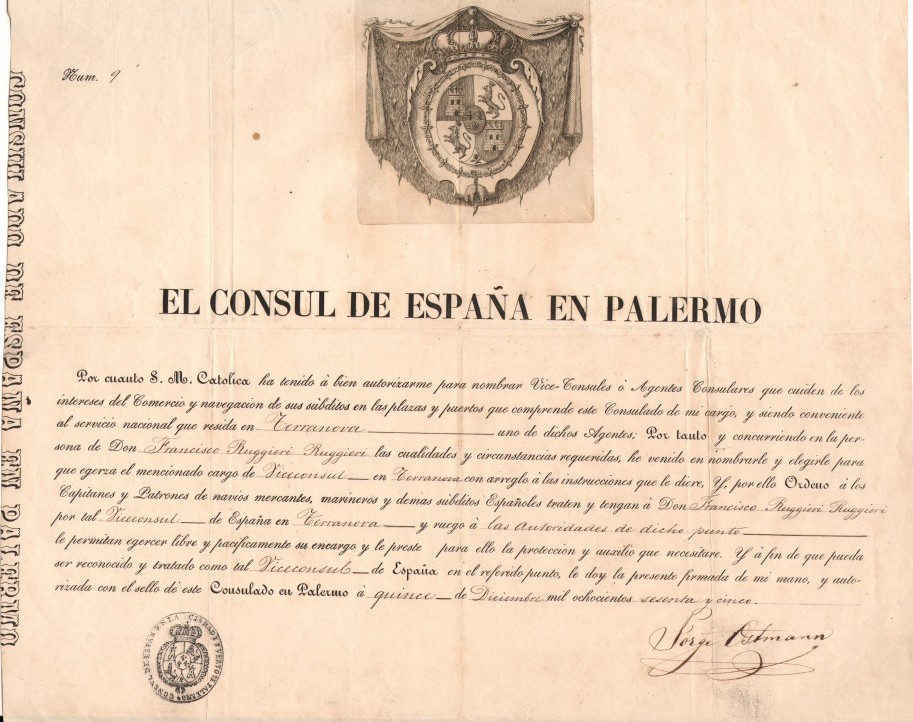 Num. 9
EL CONSUL DE ESPAÑA EN PALERMO
Por cuanto S. M. Catolica ha tenido à bien autorizarme para nombrar Vice-Consules ò Agentes Consulares que cuiden de los
intereses del Comercio y navegacion de sus sùbditos en las plazas y puertos que comprende este Consulado de mi cargo, y siendo conveniente
al servicio nacional que resida en Terranova uno de dichos Agentes; Por tanto y concurriendo en la per-
sona de Don Francisco Ruggieri Ruggieri las cualidades y circunstancias requeridas, he venido en nombrarle y elegirle para
que egerza el mencionado cargo de Viceconsul en Terranova con arreglo à las instrucciones que le diere, Y, por ello Ordeno à los
Capitanes y Patrones de navios mercantes, marineros y demas sùbditos Españoles traten y tengan à Don Francisco Ruggieri Ruggieri
por tal Viceconsul de España en Terranova y ruego à las Autoridades de dicho punto
le permitan egercer libre y pacificamente su encargo y le preste para ello la protección y auxilio que necesitare. Y à fin de que pueda
ser reconocido y tratado como tal Viceconsul de España en el referido punto, le doy la presente firmada de mi mano, y auto-
rizada con el sello de este Consulado en Palermo à quince de Diciembre mil ochocientos sesenta y cinco.
Jorge Ostmann
CONSULADO DE ESPAÑA EN PALERMO
CONSUL DE ESPAÑA EN LA CIUDAD Y PUERTO DE PALERMO